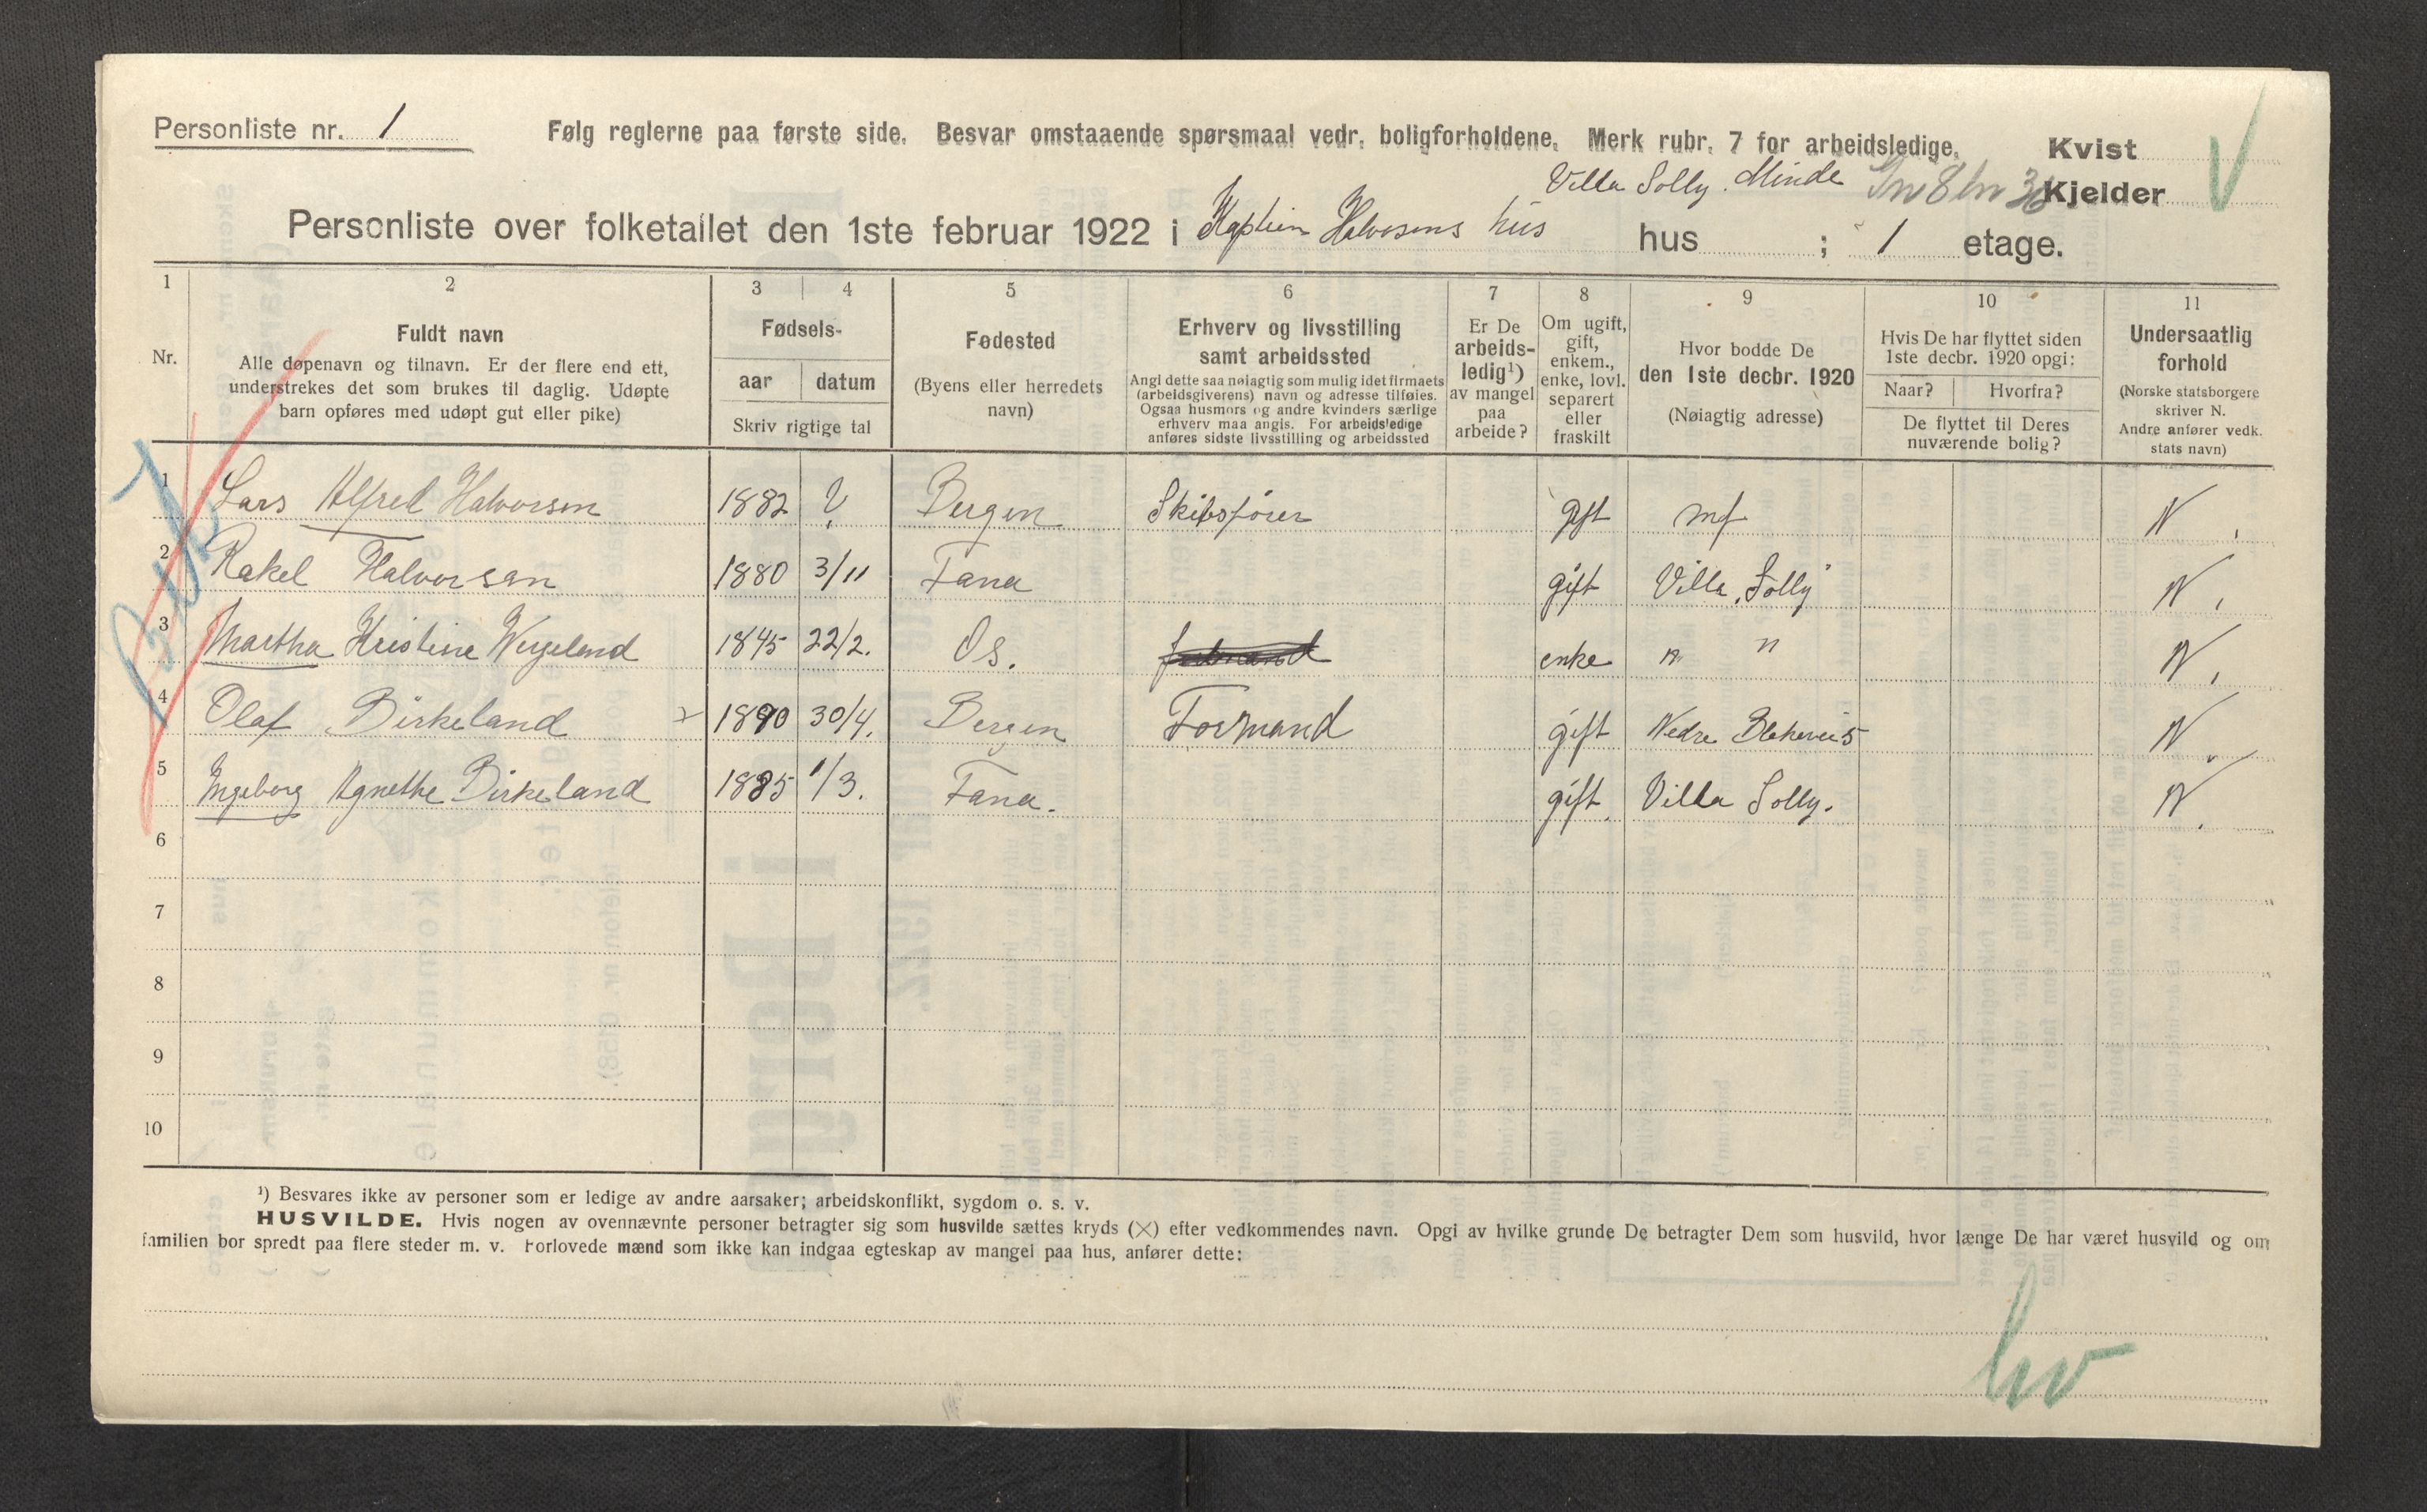 Personliste nr. 1
Følg reglerne paa første side. Besvar omstaaende spørsmaal vedr. boligforholdene. Merk rubr. 7 for arbeidsledige.
Kvist
Villa Solly. Minde
Kjelder
Personliste over folketallet den 1ste februar 1922 i Kaptein Halvorsens hus hus ; 1 etage.
1 2 3 4 5 6 7 8 9 10 11
Nr.
Fuldt navn
Alle døpenavn og tilnavn. Er der flere end ett,
understrekes det som brukes til daglig. Udøpte
barn opføres med udøpt gut eller pike)
Fødsels-
aar datum
Skriv rigtige tal
Fødested
(Byens eller herredets
navn)
Erhverv og livsstilling
samt arbeidssted
Angi dette saa nøiagtig som mulig idet firmaets
(arbeidsgiverens) navn og adresse tilføies.
Ogsaa husmors og andre kvinders særlige
erhverv maa angis. For arbeidsledige
anføres sidste livsstilling og arbeidssted
Er De
arbeids-
ledig¹)
av mangel
paa
arbeide?
Om ugift,
gift,
enkem.,
enke, lovl.
separert
eller
fraskilt
Hvor bodde De
den 1ste decbr. 1920
(Nøiagtig adresse)
Hvis De har flyttet siden
1ste decbr. 1920 opgi:
Naar? Hvorfra?
De flyttet til Deres
nuværende bolig?
Undersaatlig
forhold
(Norske statsborgere
skriver N.
Andre anfører vedk.
stats navn)
1 Lars Alfred Halvorsen 1882 ? Bergen Skibsfører gift N.
2 Rakel Halvorsen 1880 3/11 Fana gift Villa „Solly" N.
3 Martha Kristine Wergeland 1845 22/2. Os. enke " " N.
4 Olaf Birkeland 1890 30/4. Bergen Formand gift Nedre N.
5 Ingeborg Agnethe Birkeland 1885 1/3. Fana. gift. Villa Solly. N.
6
7
8
9
10
¹) Besvares ikke av personer som er ledige av andre aarsaker; arbeidskonflikt, sygdom o. s. v.
HUSVILDE. Hvis nogen av ovennævnte personer betragter sig som husvilde sættes kryds (×) efter vedkommendes navn. Opgi av hvilke grunde De betragter Dem som husvild, hvor længe De har været husvild og om
familien bor spredt paa flere steder m. v. Forlovede mænd som ikke kan indgaa egteskap av mangel paa hus, anfører dette: